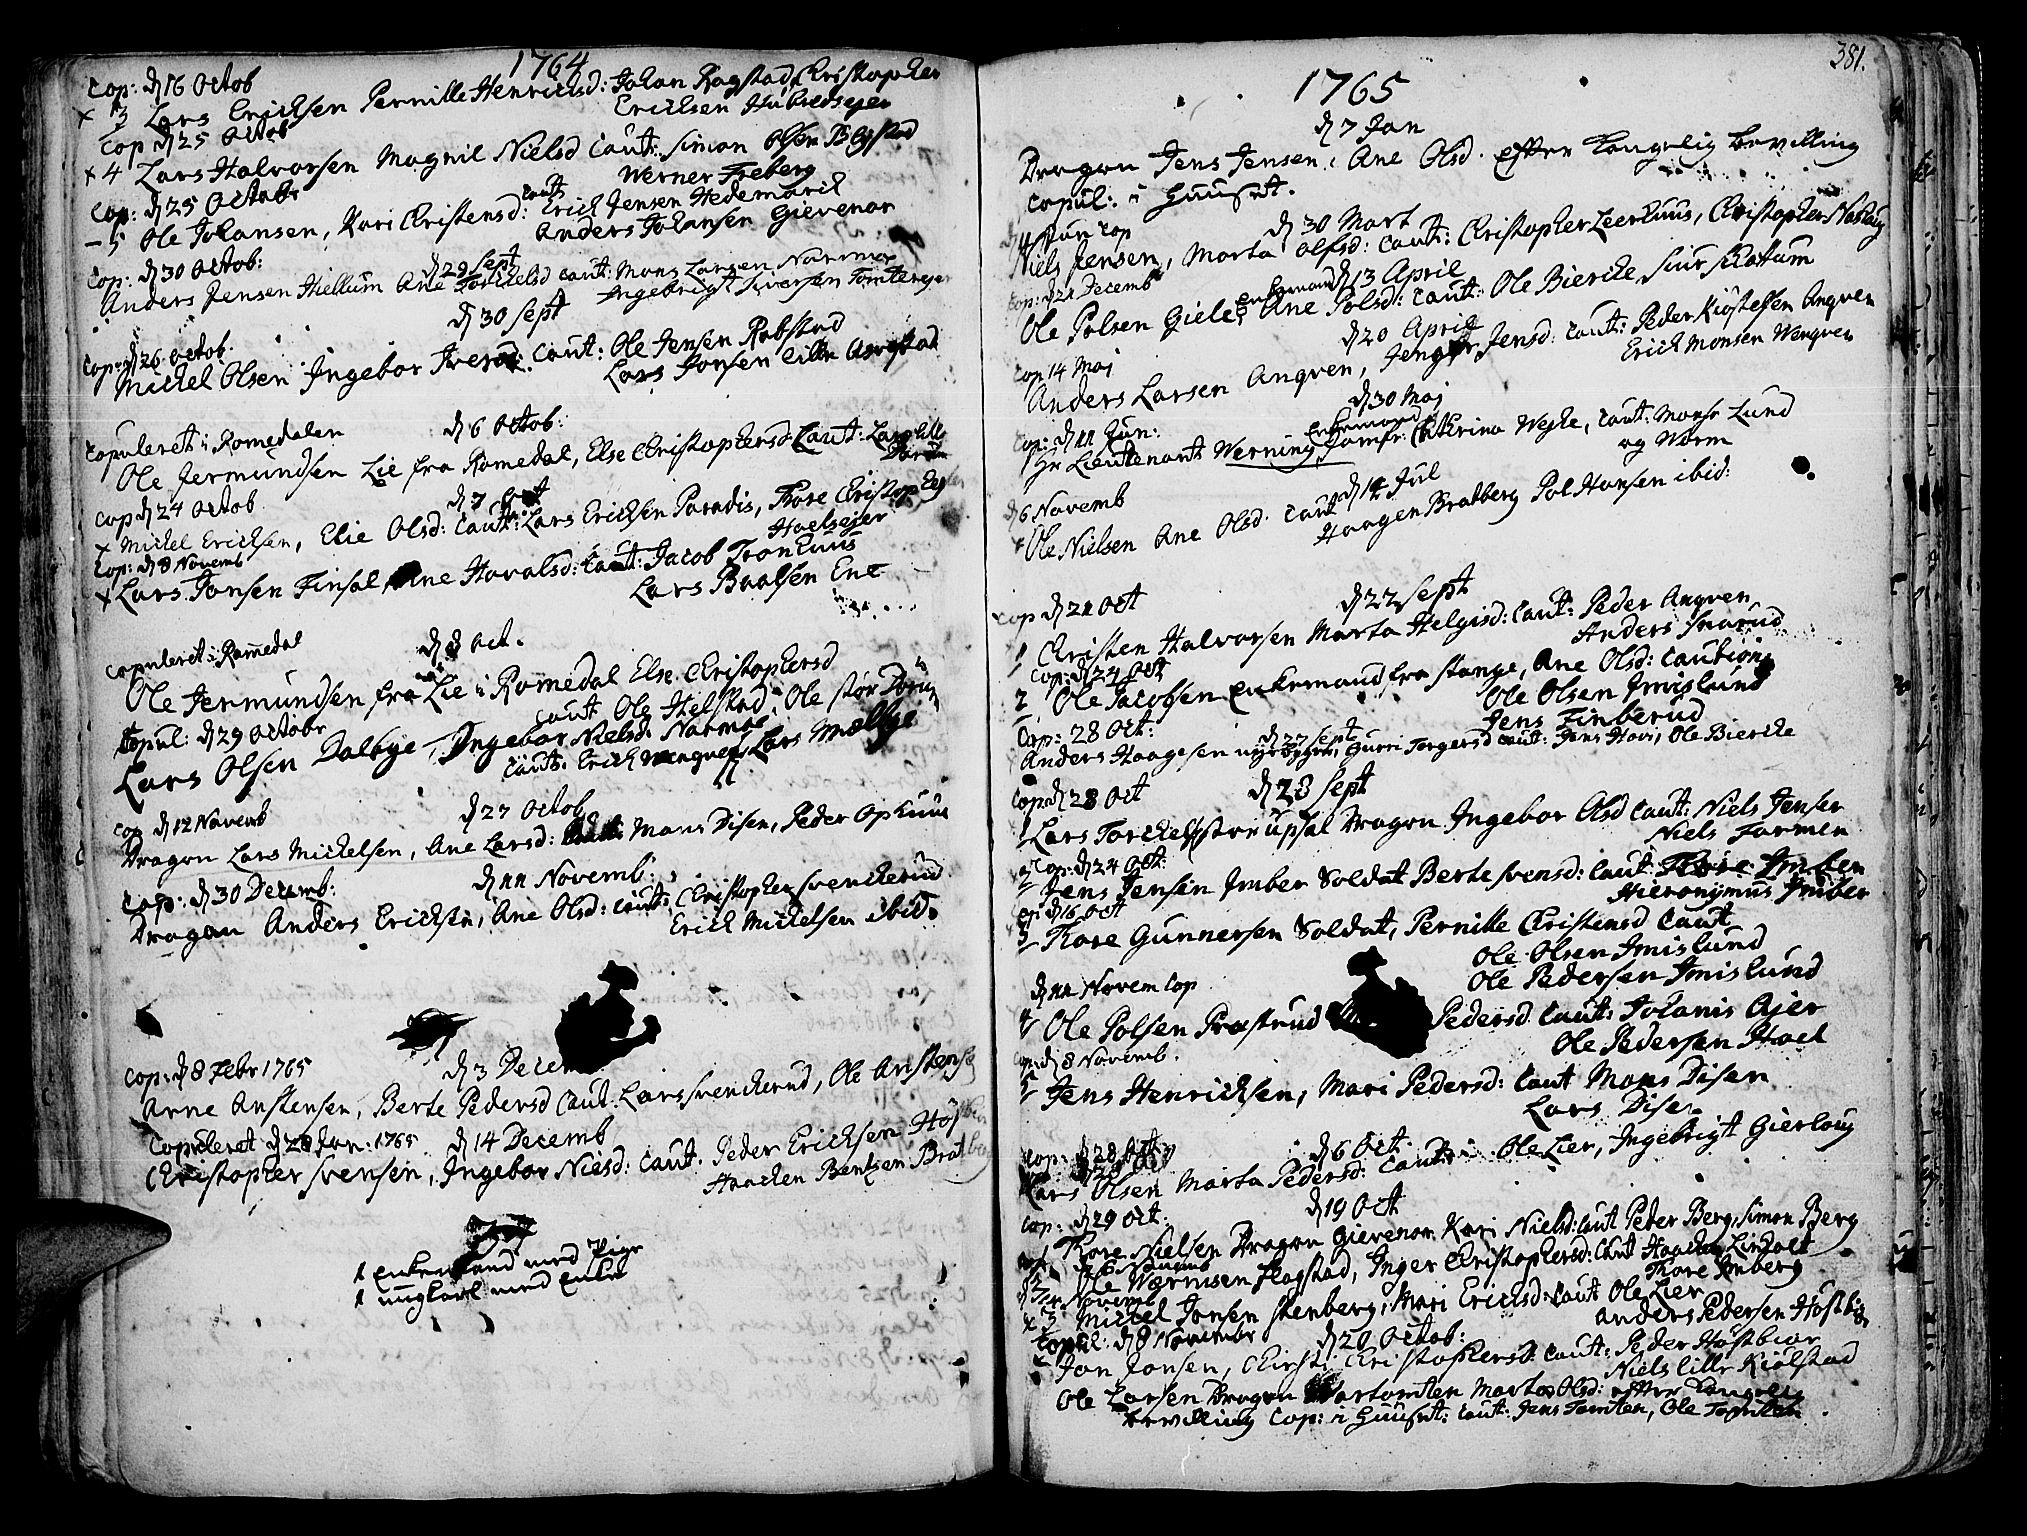 1764
Cop: d 16 Octob
x 3 Lars Ericksen Pernille Henricksd: Johan Ragstad, Christopher
Ericksen Hubredsejer
Cop d 25 Octob
x 4 Lars Halvorsen Magnil Nielsd Caut: Simon Olsen Bystad
Werner Freberg
Cop: d 25 Octobr
– 5 Ole Johansen, Kari Christensd: Caut Erich Jensen Hedemarck
Anders Johansen Gievenor
Cop: d 30 Octob: d 29 Sept
Anders Jensen Hiellum Ane Torckelsd Caut: Mons Larsen Narmoe
Ingebrigt Siversen Tomterejer
d 30 Sept
Cop: d 26 Octob.
Michel Olsen Ingebor Iversd: Caut: Ole Jensen Rabstad
Lars Jonsen lille
Copuleret i Romedalen d 6 Octob:
Ole Jermundsen Lie fra Romedal, Else Christophersd Caut: Lars lille
Cop d 24 Octob d 7 Oct
x Michel Ericksen, Elie Olsd: Caut: Lars Ericksen Paradis, Thore Christop
Hoelsejer
Cop: d 8 Novemb
x Lars Jonsen Finsal, Ane Havalsd: Caut: Jacob Tronhuus
Lars Baalsen Ene
Copuleret i Romedal d 8 Oct.
Ole Jermundsen fra Lie i Romedal Else Christophersd
Caut Ole Hielstad, Ole stor
Copul: d 29 Octobr
Lars Olsen Dalbye, Ingebor Nielsd Narmoe
Caut: Erich Wengven, Lars Mælbye
Cop d 12 Novemb d 27 Octob
Dragon Lars Mickelsen, Ane Larsd: Caut: Mons Disen, Peder Ophuus
Cop: d 30 Decemb: d 11 Novemb:
Dragon Anders Ericksen, Ane Olsd: Caut: Christopher Svenckerud
Erich Mickelsen ibid.
Cop: d 8 Febr 1765 d 3 Decem
Arne Anstensen, Berte Pedersd Caut. Lars Svenckerud, Ole Anstense
Copuleret d 28 Jan. 1765 d 14 Decemb
Christopher Svensen, Ingebor Niesd: Caut. Peder Ericksen Høst
Haachen Bentsen Bratbe
1 Enkemand med Pige
1 ungkarl med Enke
381.
1765
d 7 Jan
Dragon Jens Jensen, Ane Olsd. efter Kongelig bevilling
copul: i Huuset.
d 30 Mart
Jun Cop
Niels Jensen, Marta Olsd: Caut: Christopher Leerhuus, Christopher Nashaug
Cop: d 21 Decemb d 13 April
Ole Polsen Giele Enkemand, Ane Polsd: Caut: Ole Biercke, Siur Skattum
d 20 April
Cop 14 Maj
Anders Larsen Angven, Jensd: Caut: Peder Kiøstelsen Angven
Erich Monsen Wengven
d 30 Maj
Cop: d 11 Jun:
Hr Lieutenant Werning Enkemand, Jomfr: Cathrina Wejhe, Caut: Monsr Lund
og Worm
d 6 Novemb d 14 Jul
Ole Nielsen Ane Olsd. Caut
Haagen Bratberg Pol Hansen ibid:
Cop d 21 Oct d 22 Sept
1 Christen Halvorsen Marta Helgisd: Caut: Peder Angven
Anders Snarud
Cop: d 24 Oct
2 Ole Jacobsen Enkemand fra Stange, Ane Olsd: Caution:
Ole Olsen Imislund
Jens Finberud
Cop: 28 Oct: d 22 Sept
Anders Haagesen nyebygger, Gurri Torgersd Caut: Jens Hovi, Ole Biercke
Cop: d 28 Oct d 23 Sept
Lars Torckelsen stor Upsal Dragon Ingebor Olsd Caut: Niels Jensen
Niels Farmen
Cop: d 24 Oct:
2 Jens Jensen Imber Soldat Berte Svensd: Caut: Thore Imber
Hieronymus Imber
Cop d 16 Oct
3 Thore Gunnersen Soldat, Pernille Christensd Caut
Ole Olsen Imislund
Ole Pedersen Imislund
d 11 Novem Cop
4 Ole Polsen Præstrud Pedersd. Caut: Johanis Ajer
Ole Pedersen Hoel
Cop: d 8 Novemb.
5 Jens Henricksen, Mari Pedersd: Caut Mons Disen
Lars Disen
Cop: d 28 Oct d 6 Oct.
Lars Olsen Marta Pedersd: Caut: Ole Lier, Ingebrigt Gierlaug
d 19 Oct
Cop: d 29 Oct:
Thore Nielsen Dragon Gievenor Kari Nielsd: Caut Peder Berg, Simon Berg
Ole Wernisen Flagstad, Inger Christophersd: Caut Haachen Lindolt
Thore Imberg
x 3 Michel Jonsen Stenberg, Mari Ericksd: Caut Ole Lier
Anders Pedersen Høstbiør
Copul: d 8 November d 20 Octob:
Jon Jonsen, Christophersd: Caut: Peder Høstbiør
Niels lille Kiølstad
Ole Larsen Dragon Martomten Marta Olsd: efter Kongelig
bevilling Cop: i Huuset: Caut: Jens Tomten, Ole Tomten